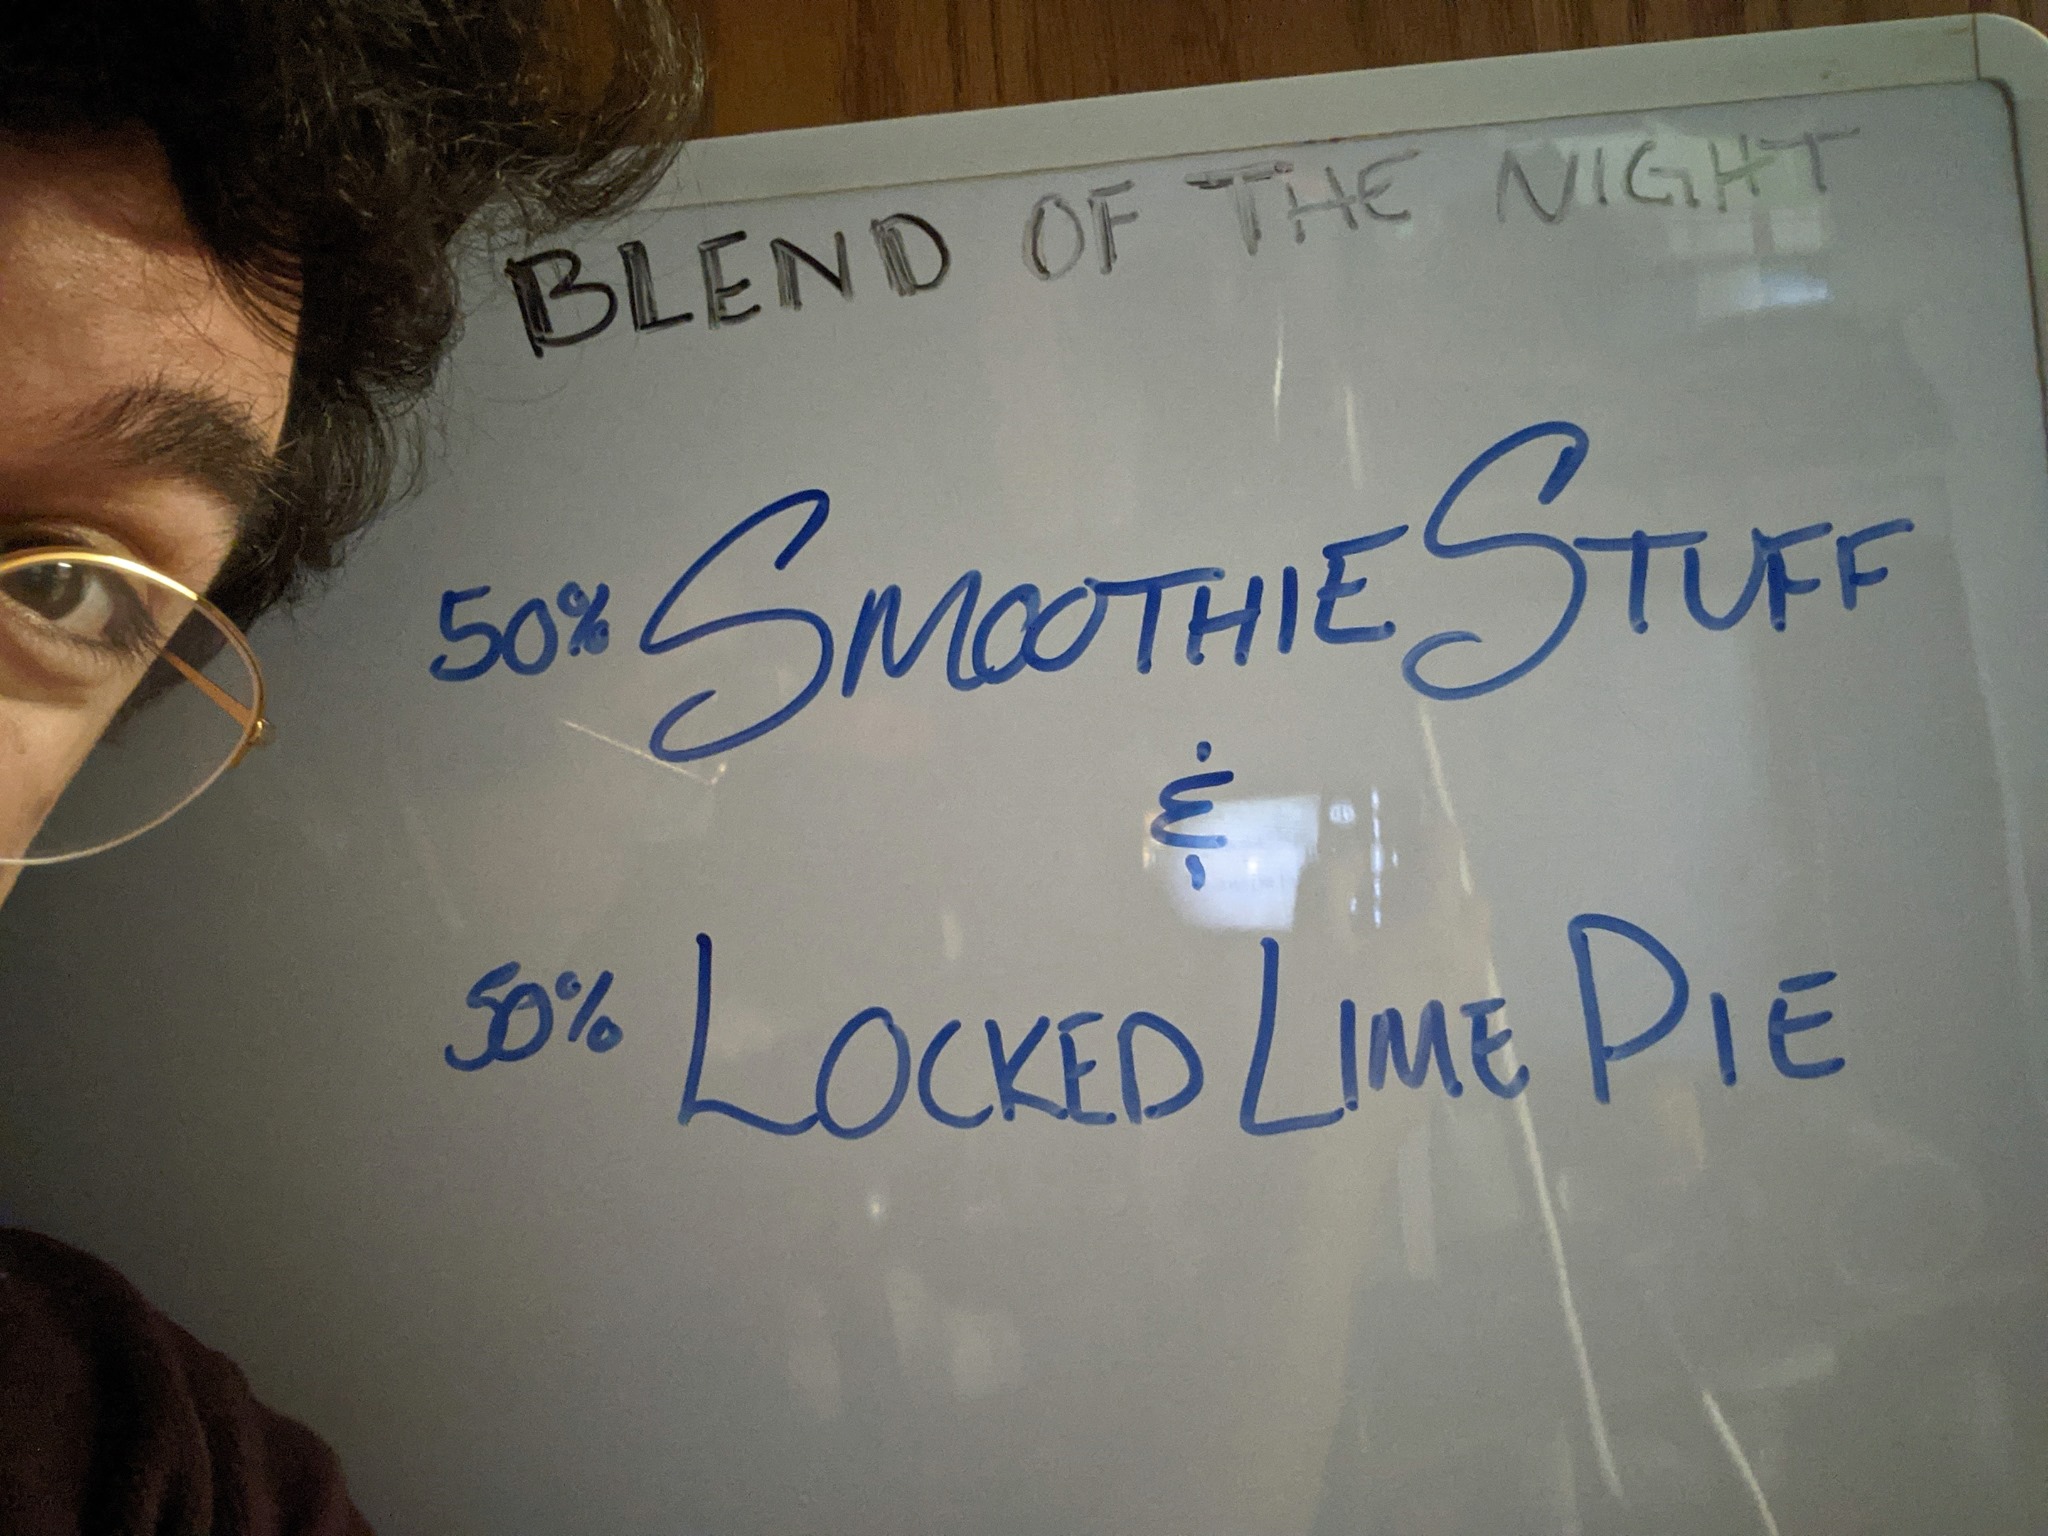 BLEND OF THE NIGHT
50% SMOOTHIE STUFF
&
50% LOCKED LIME PIE